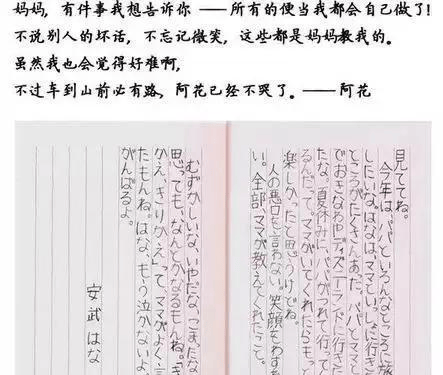 妈妈，有件事我想告诉你 ——所有的便当我都会自己做了!
不说别人的坏话，不忘记微笑，这些都是妈妈教我的。
虽然我也会觉得好难啊，
不过车到山前必有路，阿花已经不哭了。——阿花
見ててね。
今年は、パパといろんなところに旅
したいな。はなは、ママといっしょに行き
ところがたくさんあった。パパとママと
でおきなわやディズニーランドに行きた
たな。夏休みに、パパがつれて行って
るんだって。ママがいてくれたらもっと
楽しかったと思うけどね。
人の悪口を言わない、笑顔をわすれ
い。全部、ママが教えてくれたこと。
むずかしいな、いやだな、こまったな
思っても、なんとかなるもんね。き
かえ、きりかえって、ママがよく言
たもんね。はな、もう泣かないよ。
がんばるよ。
安武はな